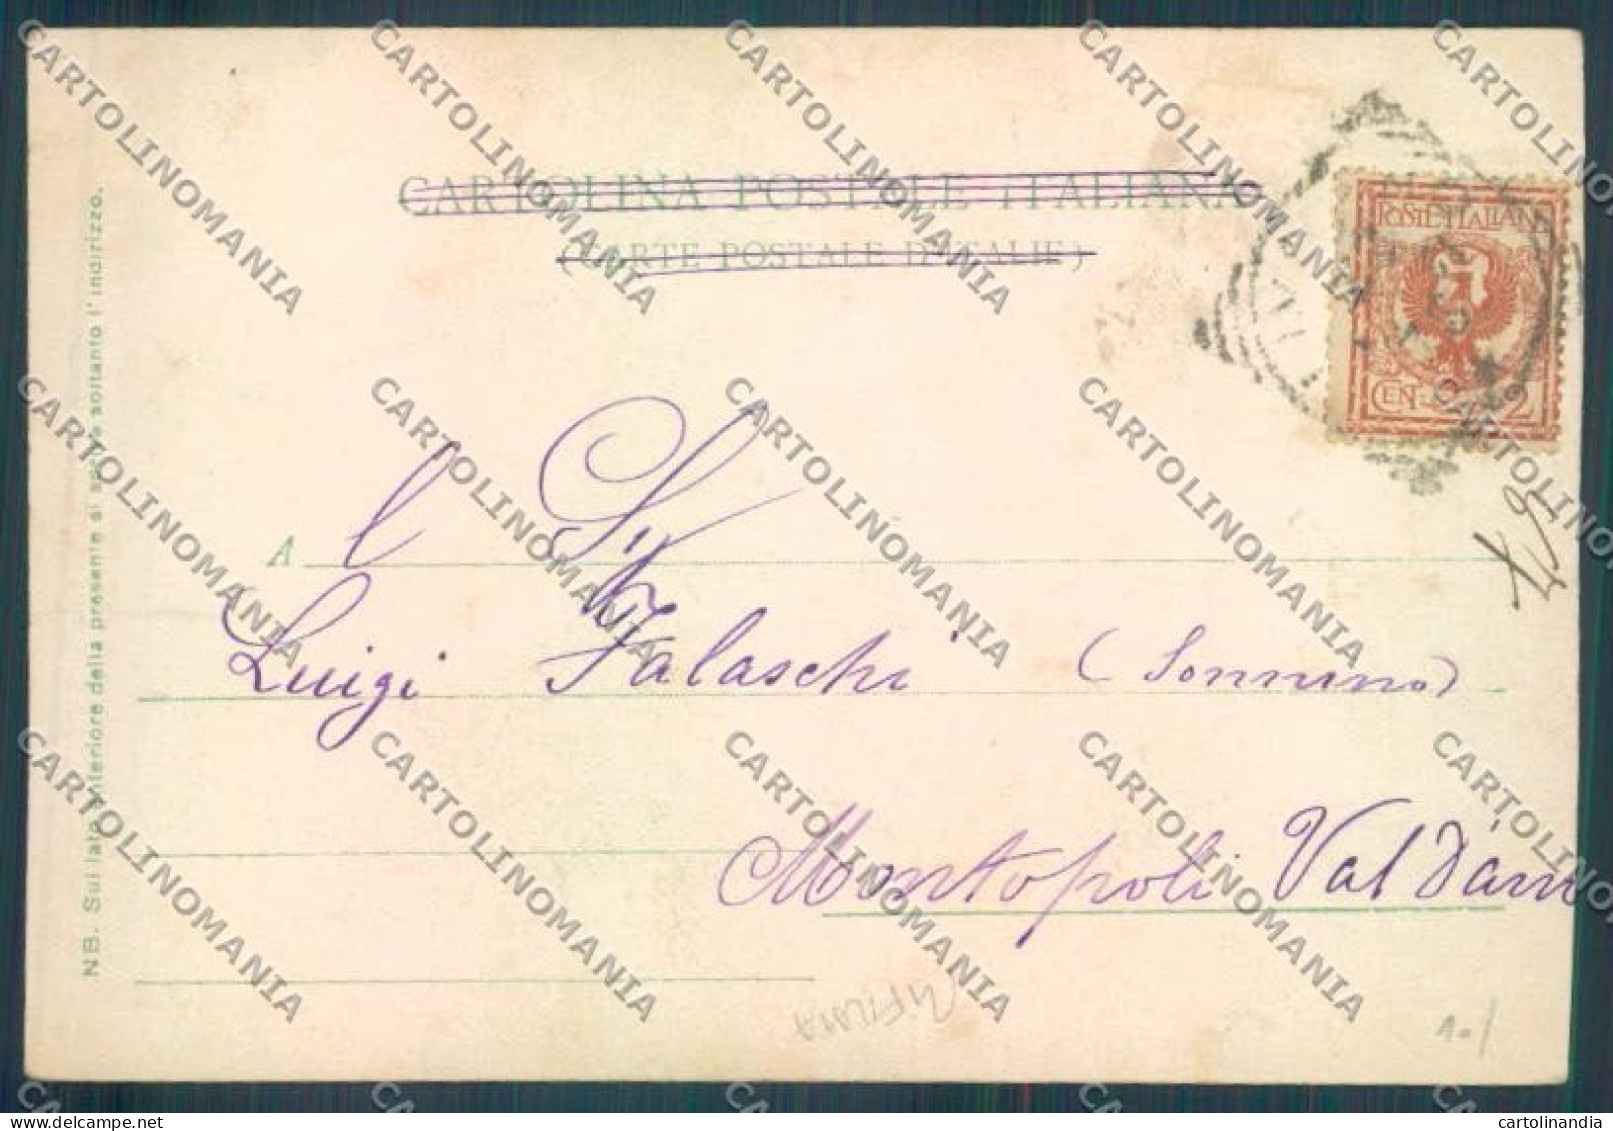 CARTOLINA POSTALE ITALIANA
(CARTE POSTALE D'ITALIE)
POSTE ITALIANE
CEN. 2
A l Sig
Luigi Falaschi (Sonnino)
Montopoli Val d'Arn
NB. Sul lato anteriore della presente si scrive soltanto l'indirizzo.
CARTOLINOMANIA
cartolinandia